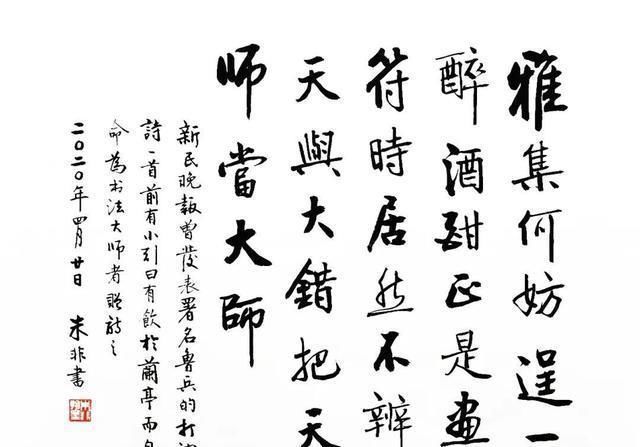 雅集何妨逞一
醉酒酣正是畫
符時居然不辨
天與大錯把天
师當大師
新民晚報曾發表署名魯兵的打油
詩一首前有小引曰有飲於蘭亭而自
命為书法大師者贈詩之
二〇二〇年四月廿日 非書